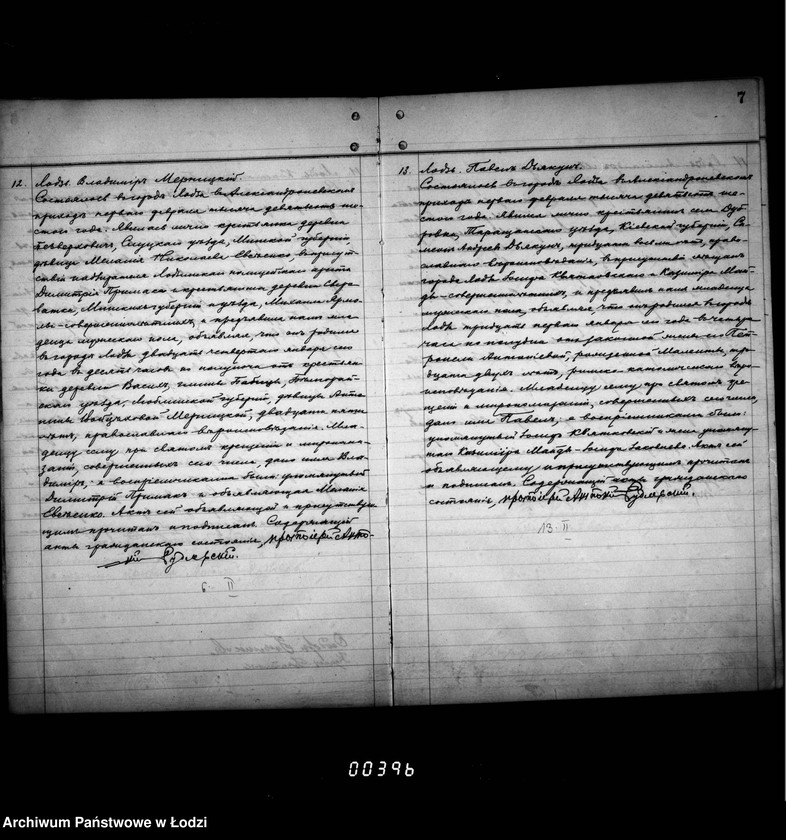 7
12. Лодзь. Владимiръ Мерницкiй.
Состоялось въ городѣ Лодзи въ Александроневскомъ
приходѣ перваго февраля тысяча девятьсотъ ше-
стого года. Явилась лично крестьянка деревни
Слуцкаго уѣзда, Минской губернiи,
дѣвица Меланiя Николаева Евченко, въ присут-
ствiи надзирателя Лодзинской
Димитрiя Примака и крестьянина деревни
Минской губернiи и уѣзда, Михаила
совершеннолѣтнихъ, и предъявила намъ мла-
денца мужескаго пола, объявляя, что онъ родился
въ городѣ Лодзи двадцать четвертаго января сего
года въ десять часовъ по полуночи отъ крестьян-
ки деревни
уѣзда, Люблинской губернiи, дѣвицы Анто-
нины Мерницкой, двадцати пяти
лѣтъ, православнаго вѣроисповѣданiя. Мла-
денцу сему при святомъ крещенiи и мvропома-
занiи, совершенныхъ сего числа, дано имя Вла-
димiръ, а воспрiемниками были упомянутый
Димитрiй Примакъ и объявляющая Меланiя
Евченко. Актъ сей объявляющей и присутствую-
щимъ прочитанъ и подписанъ. Содержащiй
акты гражданскаго состоянiя, протоiерей Анто-
нiй Рудлевскiй.
6 II
13. Лодзь. Павелъ Дьякунъ.
Состоялось въ городѣ Лодзи въ Александроневскомъ
приходѣ перваго февраля тысяча девятьсотъ ше-
стого года. Явился лично крестьянинъ села
Таращанскаго уѣзда, Кiевской губернiи, Се-
менъ Андреевъ Дьякунъ, тридцати лѣтъ, право-
славнаго вѣроисповѣданiя, въ присутствiи мѣщанъ
города Лодзи Iосифа Квятковскаго и Казимiра
совершеннолѣтнихъ, и предъявилъ намъ младенца
мужескаго пола, объявляя, что онъ родился въ городѣ
Лодзи тридцать перваго января сего года въ четыре
часа по полудни отъ законной жены его Пет-
ронели Антоновой, рожденной три-
дцати двухъ лѣтъ, римско-католическаго вѣро-
исповѣданiя. Младенцу сему при святомъ кре-
щенiи и мvропомазанiи, совершенныхъ сего числа,
дано имя Павелъ, а воспрiемниками были:
упомянутый Iосифъ Квятковскiй и жена упомяну-
таго Казимiра Актъ сей
объявляющему и присутствующимъ прочитанъ
и подписанъ. Содержащiй акты гражданскаго
состоянiя, протоiерей Антонiй Рудлевскiй.
13 · II
00396
Archiwum Państwowe w Łodzi